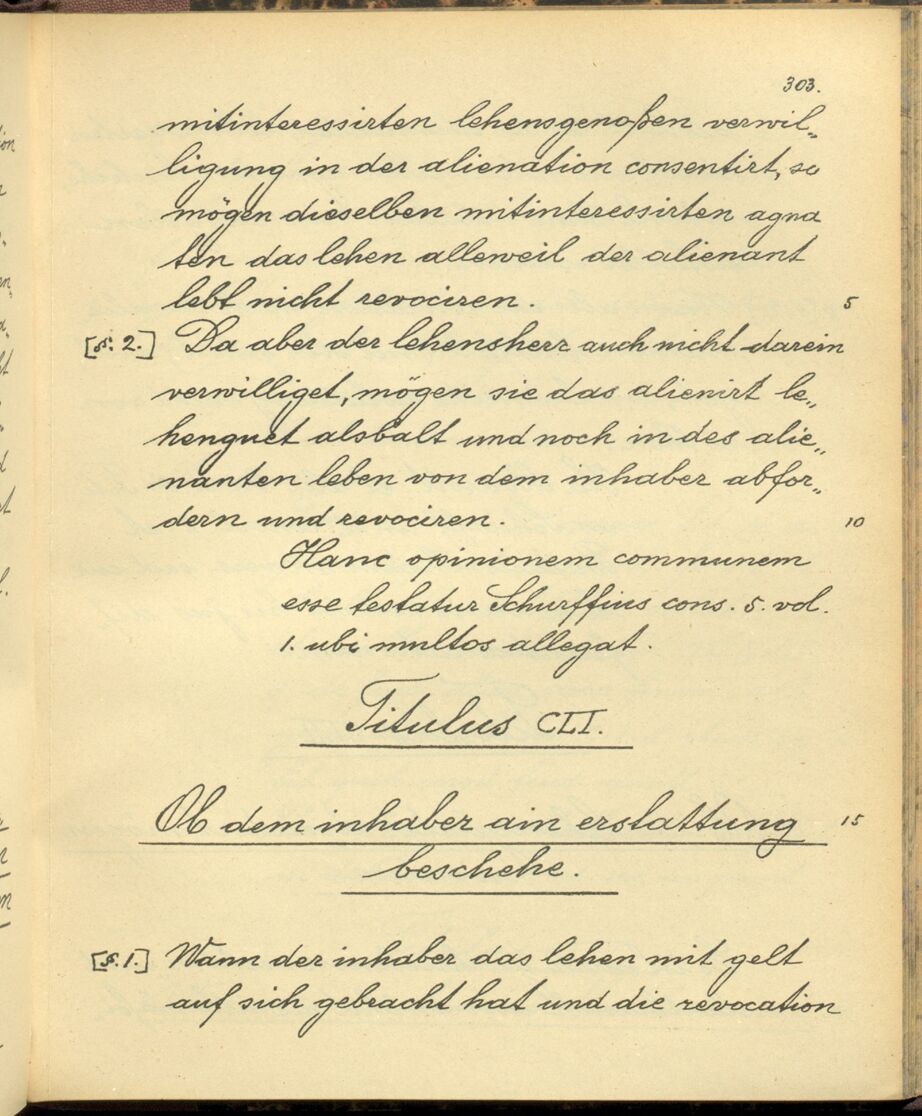 303.
mitinteressirten lehensgenoßen verwil„
ligung in der alienation consentirt, so
mögen dieselben mitinteressirten agna
ten das lehen alleweil der alienant
lebt nicht revociren. 5
[§. 2.] Da aber der lehensherr auch nicht darein
verwilliget, mögen sie das alienirt le„
henguet alsbalt und noch in des alie„
nanten leben von dem inhaber abfor„
dern und revociren. 10
Hanc opinionem communem
esse testatur Schurffius cons. 5. vol.
1. ubi multos allegat.
Titulus CLI.
Ob dem inhaber ain erstattung 15
beschehe.
[§. 1.] Wann der inhaber das lehen mit gelt
auf sich gebracht hat und die revocation